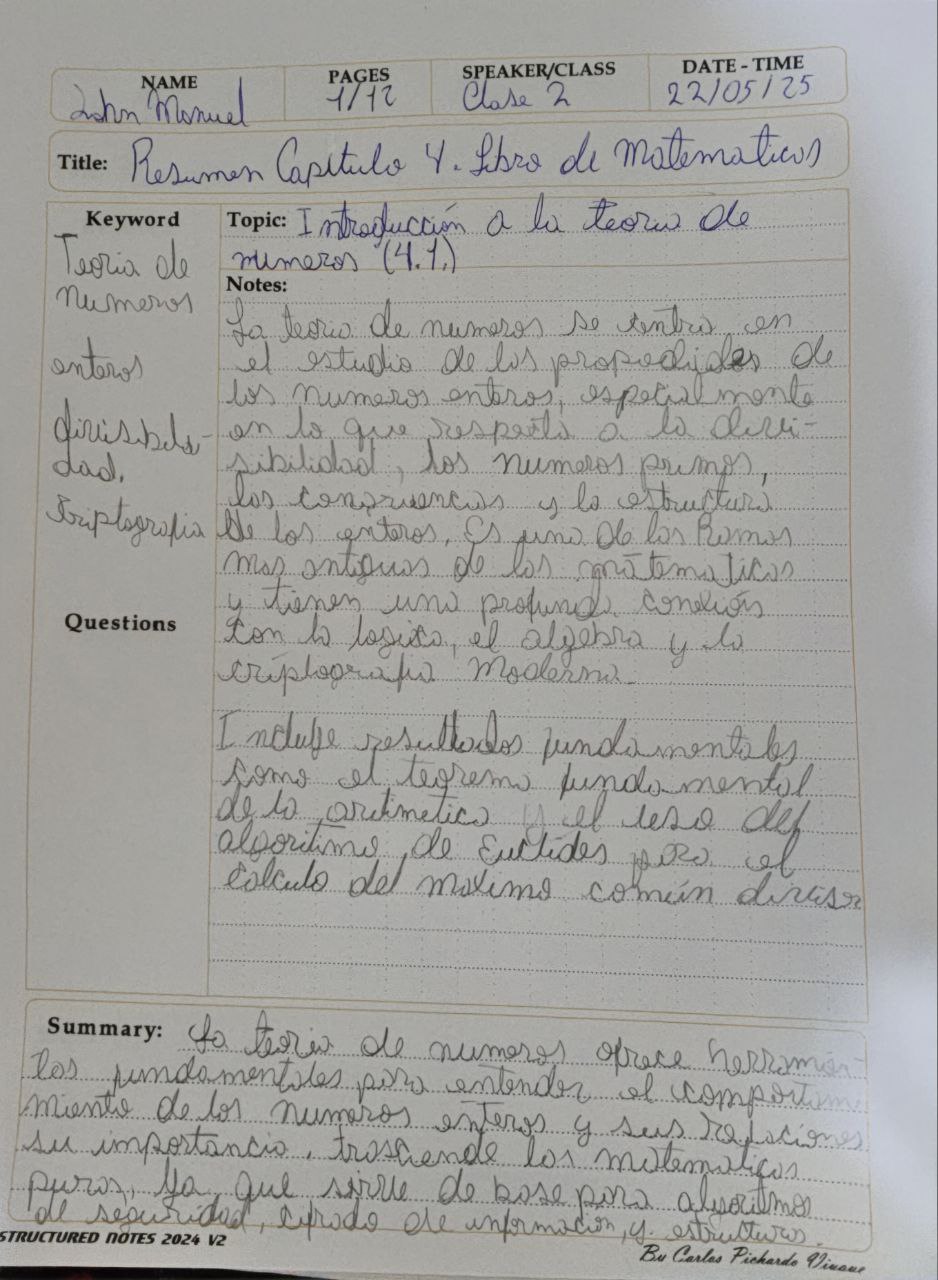 NAME PAGES SPEAKER/CLASS DATE - TIME
John Manuel 1/12 Clase 2 22/05/25
Title: Resumen Capitulo 4. Libro de Matematicas
Keyword
Teoria de
Numeros
enteros
divisibili-
dad.
Criptografia
Questions
Topic: Introducción a la teoria de
numeros (4.1.)
Notes:
La teoria de numeros se centra en
el estudio de las propiedades de
los numeros enteros, especialmente
en lo que respecta a la divi-
sibilidad, los numeros primos,
las congruencias y la estructura
de los enteros. Es una de las Ramas
mas antiguas de las matematicas
y tienen una profunda conexión
con la logica, el algebra y la
criptografia Moderna.
Incluye resultados fundamentales
como el teorema fundamental
de la aritmetica y el uso del
algoritimo de Euclides para el
calculo del maximo común divisor
Summary: La teoria de numeros ofrece herramien-
tas fundamentales para entender el comporta
miento de los numeros enteros y sus relaciones
su importancia, trasciende las matematicas
puras, Ya que sirve de base para algoritmos
de seguridad, cifrado de informacion, y estructuras.
STRUCTURED NOTES 2024 V2
By Carlos Pichardo Viuque